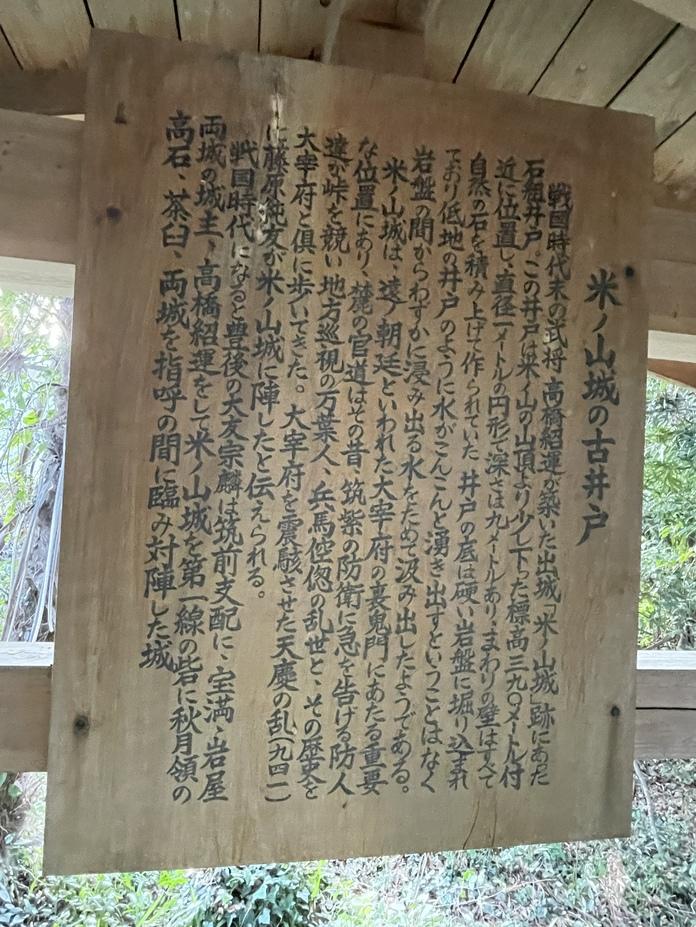 米ノ山城の古井戸
戦国時代末の武将、高橋紹運が築いた出城「米ノ山城」跡にあた
石組井戸。この井戸は米ノ山の山頂より少し下った標高三九〇メートル付
近に位置し、直径一メートルの円形で深さは九メートルあり、まわりの壁はすべて
自然の石を積み上げて作られていた。井戸の底は硬い岩盤に堀り込まれ
ており低地の井戸のように水がこんこんと湧き出すということはなく
岩盤の間からわずかに浸み出る水をためて汲み出したようである。
米ノ山城は、遠ノ朝廷といわれた大宰府の裏鬼門にあたる重要
な位置にあり、麓の官道はその昔、筑紫の防衛に急を告げる防人
達が峠を競い、地方巡視の万葉人、兵馬倥偬の乱世と、その歴史を
大宰府と倶に歩いてきた。大宰府を震駭させた天慶の乱(九四一)
に藤原純友が米ノ山城に陣したと伝えられる。
戦国時代になると豊後の大友宗麟は筑前支配に、宝満、岩屋
両城の城主、高橋紹運をして米ノ山城を第一線の砦に秋月領の
高石、茶臼、両城を指呼の間に臨み対陣した城